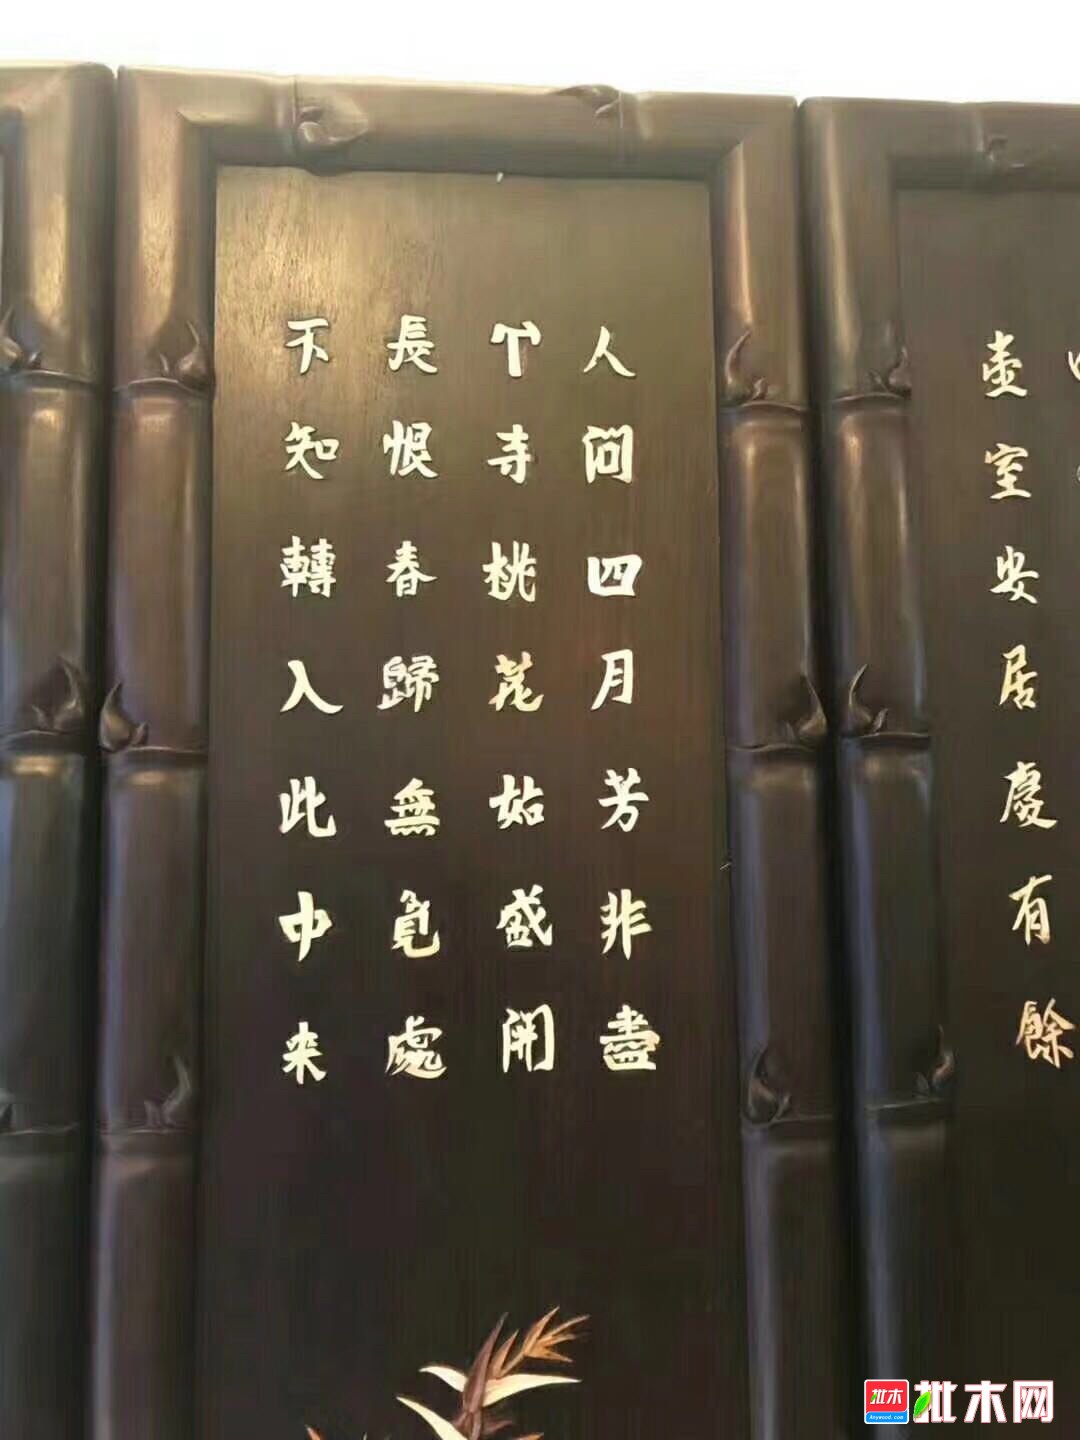 壷室安居處有餘
人问四月芳非盡
个寺桃花姑盛開
長恨春歸無覓處
不知轉入此中来
批木
Anywood.com
批木网